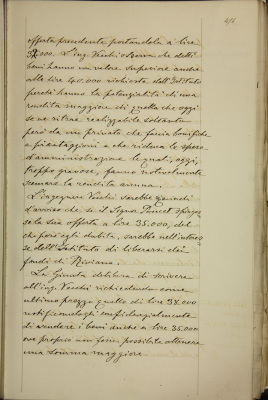 offerta precedente portandola a lire
32.000. L'ing. Vecchi osserva che detti
beni hanno un valore superiore anche
alle lire 40.000 richieste dall'Istituto
perchè hanno la potenzialità di una
rendita maggiore di quella che oggi
se ne ritrae realizzabile soltanto
però da un privato che faccia bonifiche
e piantaggioni e che riduca le spese
d'amministrazione le quali, oggi,
troppo gravose, fanno notevolmente
scemare la rendita annua.
L'ingegnere Vecchi sarebbe quindi
d'avviso che se il Signor
se la sua offerta a lire 35.000, del
che però egli dubita, sarebbe nell'interes
se dell'Istituto di liberarsi dei
fondi di
La Giunta delibera di scrivere
all'ing. Vecchi richiedendo come
ultimo prezzo quello di lire 38.000
notificandogli confidenzialmente
di vendere i beni anche a lire 35.000
ove proprio non fosse possibile ottenere
una somma maggiore.